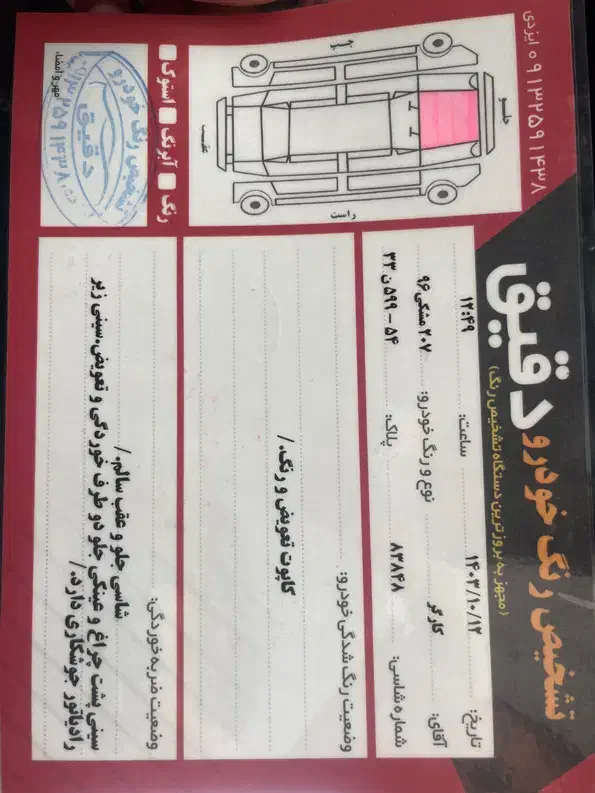 تشخیص رنگ خودرو دقیق
(مجهز به بروزترین دستگاه تشخیص رنگ)
۰۹۱۳۲۵۹۱۴۳۸ ایزدی
تاریخ: ۱۴۰۳/۱۰/۱۲ ساعت: ۱۲:۴۹
آقای: کارگر نوع و رنگ خودرو: ۲۰۷ مشکی ۹۶
شماره شاسی: ۸۳۸۴۸ پلاک: ۵۴ - ۵۹۹ ن ۳۳
جلو
راست
عقب
وضعیت رنگ شدگی خودرو:
کاپوت تعویض و رنگ. /
رنگ آبرنگ استوک
وضعیت ضربه خوردگی:
شاسی جلو و عقب سالم. /
سینی پشت چراغ و عینکی جلو دو طرف خوردگی و تعویض. سینی زیر
رادیاتور جوشکاری دارد. /
مهر و امضاء
تشخیص رنگ خودرو
دقیق